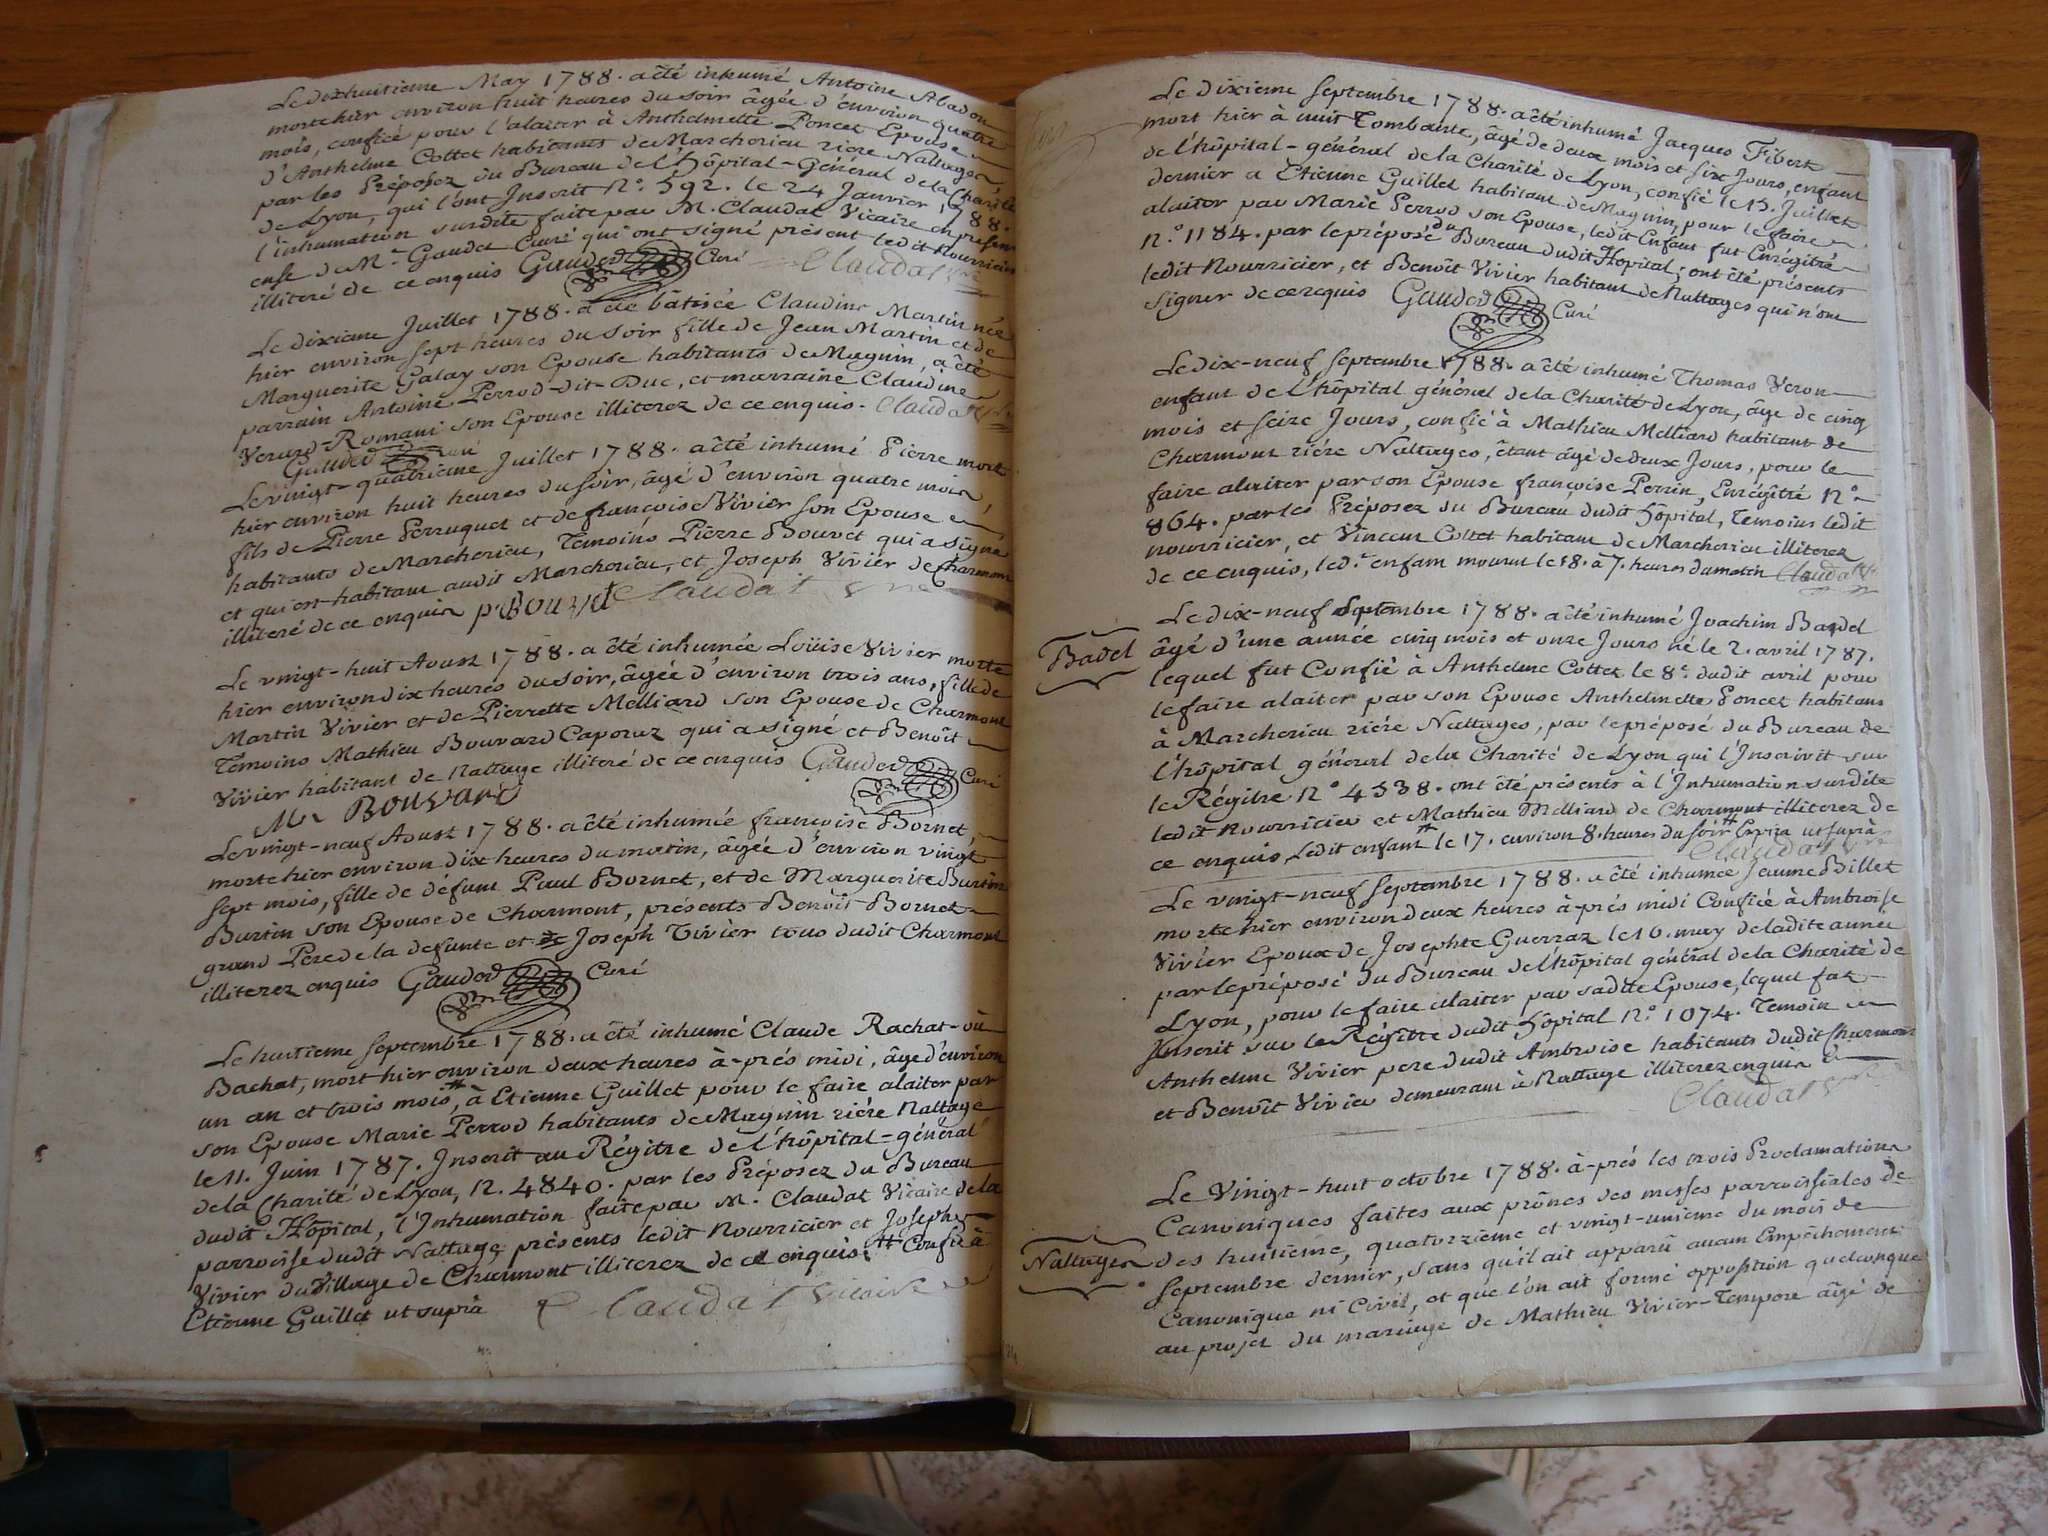 Le dixhuitieme May 1788. a êté inhumé Antoine Abadon
mort hier environ huit heures du soir âgée d'environ quatre
mois, confiée pour l'alaiter à Anthelmette Poncet Epouse
d'Anthelme Cottet habitants de Marcherieu riere Nattages
par les Préposez du Bureau de l'hôpital-Général de la Charité
de Lyon, qui l'ont Inscrit N.º 592. le 24 Janvier 1788.
l'inhumation surdite faite par M. Claudat Vicaire en pres
ense de M.r Gauded Curé qui ont signé présent ledit Nourricier
illiteré de ce enquis Gauded Curé Claudat
Le dixieme Juillet 1788. a êté bâtisée Claudine Martin née
hier environ sept heures du soir fille de Jean Martin et de
Marguerite Galay son Epouse habitants de Magnin, a êté
parrain Antoine Perrod-dit-Duc, et marraine Claudine
Verard-Romani son Epouse illiterez de ce enquis. Claudat
Gauded Curé
Le vingt-quatrieme Juillet 1788. a êté inhumé Pierre mort
hier environ huit heures du soir, âgé d'environ quatre mois,
fils de Pierre Perruquet et de françoise Vivier son Epouse
habitants de Marcherieu, Temoins Pierre Bouvet qui a signé
et qui est habitant audit Marcherieu, et Joseph Vivier de Charmont
illiteré de ce enquis p. Bouvet Claudat
Le vingt-huit Aoust 1788. a êté inhumée Loüise Vivier morte
hier environ dix heures du soir, âgée d'environ trois ans, fille de
Martin Vivier et de Pierrette Melliard son Epouse de Charmont
Temoins Mathieu Bouvard Caporuz qui a signé et Benoît
Vivier habitant de Nattage illiteré de ce enquis Gauded Curé
M. BOUVARD
Le vingt-neuf Aoust 1788. a êté inhumée françoise Bornet,
morte hier environ dix heures du matin, âgée d'environ vingt
sept mois, fille de défunt Paul Bornet, et de Marguerite Burtin
Burtin son Epouse de Charmont, présents Benoît Bornet
grand Pere de la defunte et de Joseph Vivier tous dudit Charmont
illiterez enquis Gauded Curé
Le huitieme septembre 1788. a êté inhumé Claude Rachat-où
Bachat, mort hier environ deux heures à-prés midi, âge d'environ
un an et trois mois, à Etienne Guillet pour le faire alaiter par
son Epouse Marie Perrod habitants de Magnin riére Nattage
le 11. Juin 1787. Inscrit au Régitre de l'hôpital-général
de la Charité de Lyon, N. 4840. par les Préposez du Bureau
dudit Hôpital, l'Inhumation faite par M. Claudat Vicaire de la
parroisse dudit Nattage, présents ledit Nourricier et Joseph
Vivier du Village de Charmont illiterez de ce enquis. Confié à
Etienne Guillet ut suprà Claudat Vicaire
Le dixieme septembre 1788. a êté inhumé Jacques Fibert
mort hier à nuit Tombante, âgé de deux mois et six Jours, enfant
de l'hôpital-général de la Charité de Lyon, confié le 15. Juillet
dernier a Etienne Guillet habitant de Magnin, pour le faire
alaiter par Marie Perrod son Epouse, ledit Enfant fut Enregitré
N.º 1184. par le préposé du Bureau dudit Hôpital; ont êté présents
ledit Nourricier, et Benoît Vivier habitant de Nattages qui n'ont
signer de ce requis Gauded Curé
Le dix-neuf septembre 1788. a êté inhumé Thomas Veron
enfant de l'hôpital général de la Charité de Lyon, âge de cinq
mois et seize Jours, confié à Mathieu Melliard habitant de
Charmont riére Nattages, êtant âgé de deux Jours, pour le
faire alaiter par son Epouse françoise Perrin, Enrégîtré N.º
864. par les Préposez du Bureau dudit hôpital, Temoins ledit
nourricier, et Vincent Cottet habitant de Marcherieu illiterez
de ce enquis, led.t enfant mourut le 18. à 7. heures du matin Claudat
Badel
Le dix-neuf septembre 1788. a êté inhumé Joachim Badel
âgé d'une année cinq mois et onze Jours né le 2. avril 1787.
lequel fut Confié à Anthelme Cottet le 8.e dudit avril pour
le faire alaiter par son Epouse Anthelmette Poncet habitans
à Marcherieu riére Nattages, par le préposé du Bureau de
l'hôpital général de la Charité de Lyon qui l'Inscrivit sur
le Régitre N.º 4338. ont êté présents à l'Inhumation surdite
ledit Nourricier et Mathieu Melliard de Charmont illiterez de
ce enquis, Ledit enfant le 17. environ 8. heures du soir Expira ut suprà
Claudat
Le vingt-neuf septembre 1788. a êté inhumée Jeanne Billet
morte hier environ deux heures à-prés midi Confiée à Ambroise
Vivier Epoux de Josephte Guerraz le 16. may de ladite année
par le préposé du Bureau de l'hôpital général de la Charité de
Lyon, pour le faire alaiter par sadite Epouse, lequel fat
Inscrit sur le Régitre dudit hôpital N.º 1074. Temoin
Anthelme Vivier pere dudit Ambroise habitants dudit Charmont
et Benoît Vivier demeurant à Nattage illiterez enquis
Claudat
Nattages
Le Vingt-huit octobre 1788. à-prés les trois Proclamations
Canoniques faites aux prônes des messes parroissiales de
des huitieme, quatorzieme et vingt-unieme du mois de
septembre dernier, sans qu'il ait apparû aucun Empêchement
Canonique ni Civil, et que l'on ait formé opposition quelconque
au projet du mariage de Mathieu Vivier-Tempore âgé de